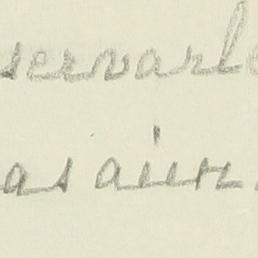 servarle
as aún